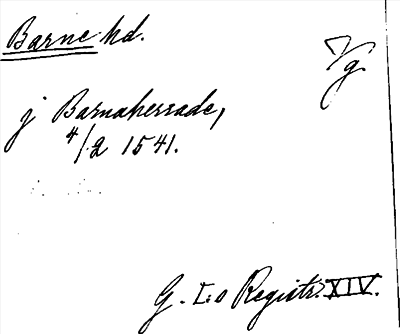 Barne hd.
j Barnaherrade,
4/2 1541.
G. I:s Registr. XIV.